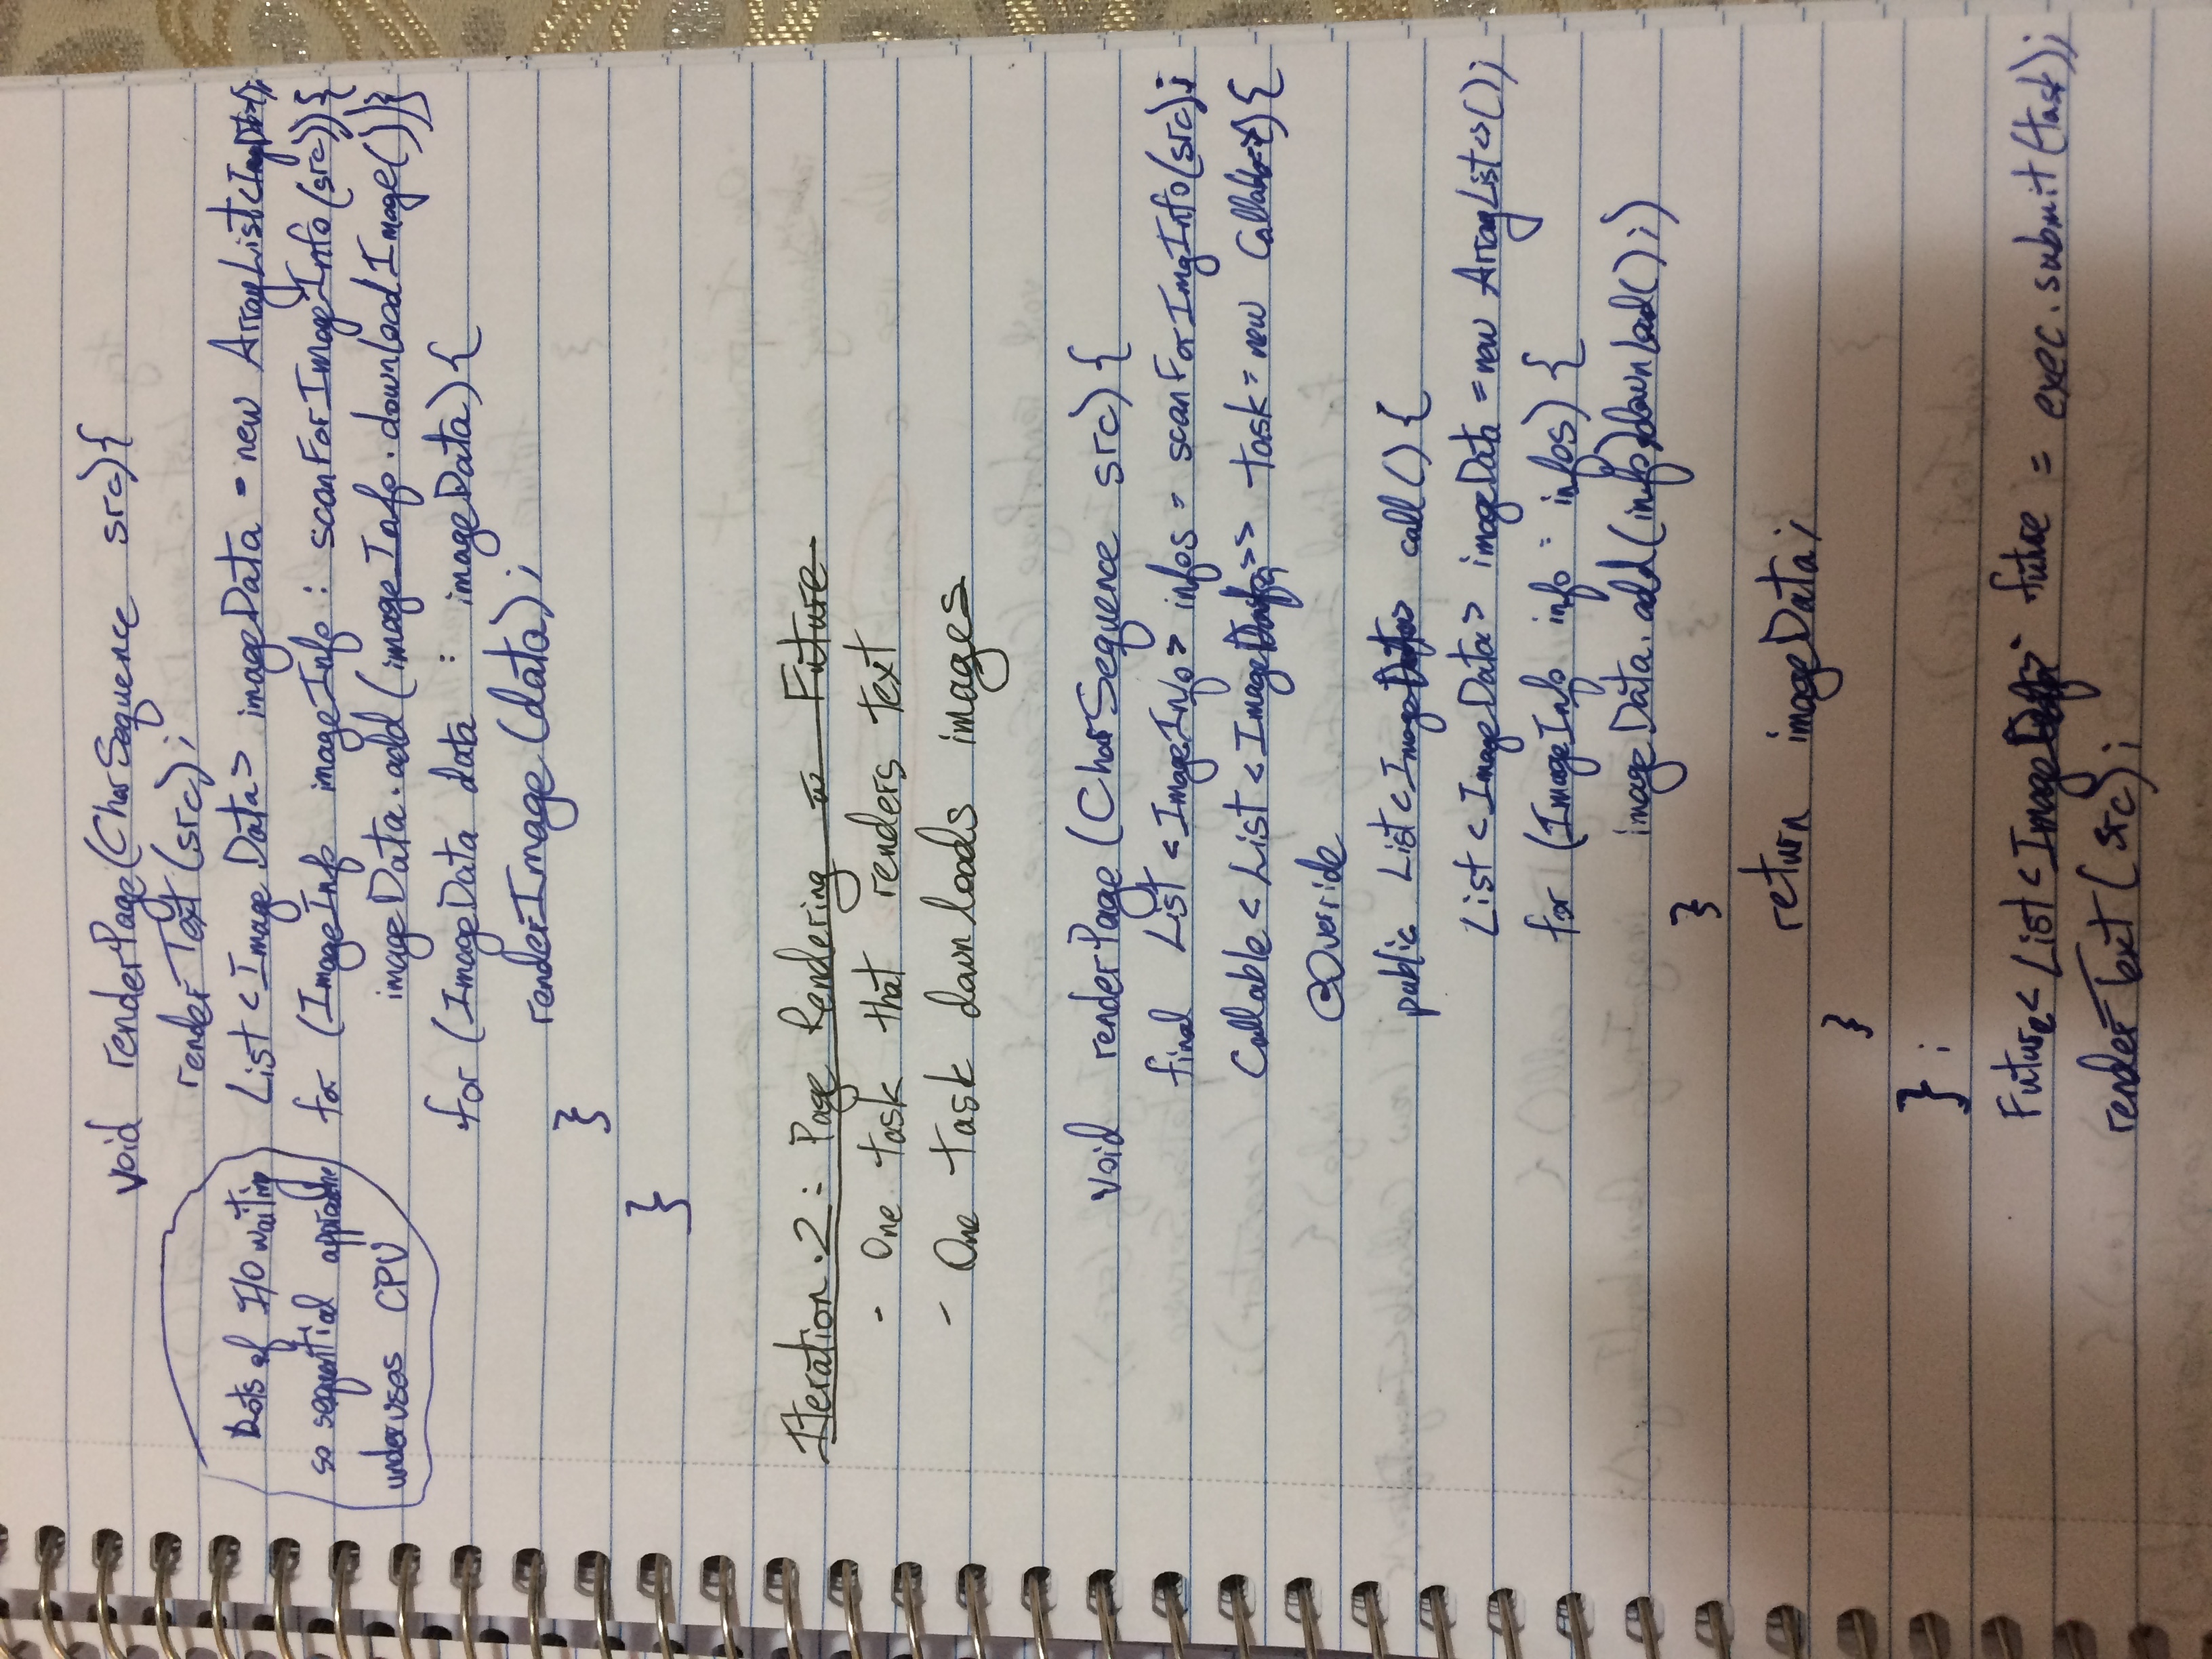 void renderPage(CharSequence src){
renderText(src);
Lots of I/O waiting
so sequential approache
underuses CPU
List<ImageData> imageData = new ArrayList<ImgDt>();
for (ImageInfo imageInfo : scanForImageInfo(src)){
imageData.add(imageInfo.downloadImage())}
for (ImageData data : imageData){
renderImage(data);
}
}
Iteration.2: Page Rendering w Future
- One task that renders text
- One task downloads images
void renderPage(CharSequence src){
final List<ImageInfo> infos = scanForImgInfo(src);
Callable<List<ImageData>> task = new Callable<>(){
@Override
public List<ImageData> call(){
List<ImageData> imageData = new ArrayList<>();
for (ImageInfo info : infos){
imageData.add(info).download();)
}
return imageData;
}
};
Future<List<ImageData>> future = exec.submit(task);
renderText(src);